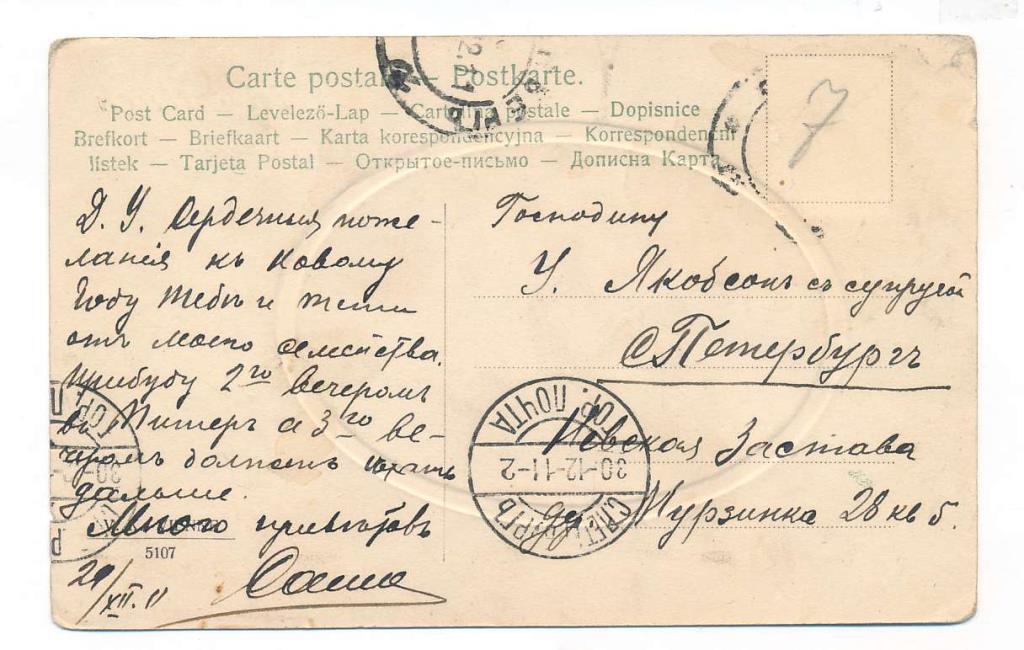 Carte postale — Postkarte.
Post Card — Levelező-Lap — Cartolina postale — Dopisnice
Brefkort — Briefkaart — Karta korespondencyjna — Korrespondenční
listek — Tarjeta Postal — Открытое-письмо — Дописна Карта
7
Д. У. Сердечныя поже-
ланія къ Новому
Году тебѣ и
отъ моего семейства.
Прибуду 2го вечеромъ
въ Питеръ а 3-го ве-
черомъ долженъ ѣхать
дальше.
Много привѣтовъ
5107
29/XII.11
Саша
Господину
У. Якобсонъ съ супругой
С Петербургъ
Невская Застава
дер. Мурзинка 28 кв 5.
С.ПЕТЕРБУРГЪ
30-12-11-2
ГОР. ПОЧТА